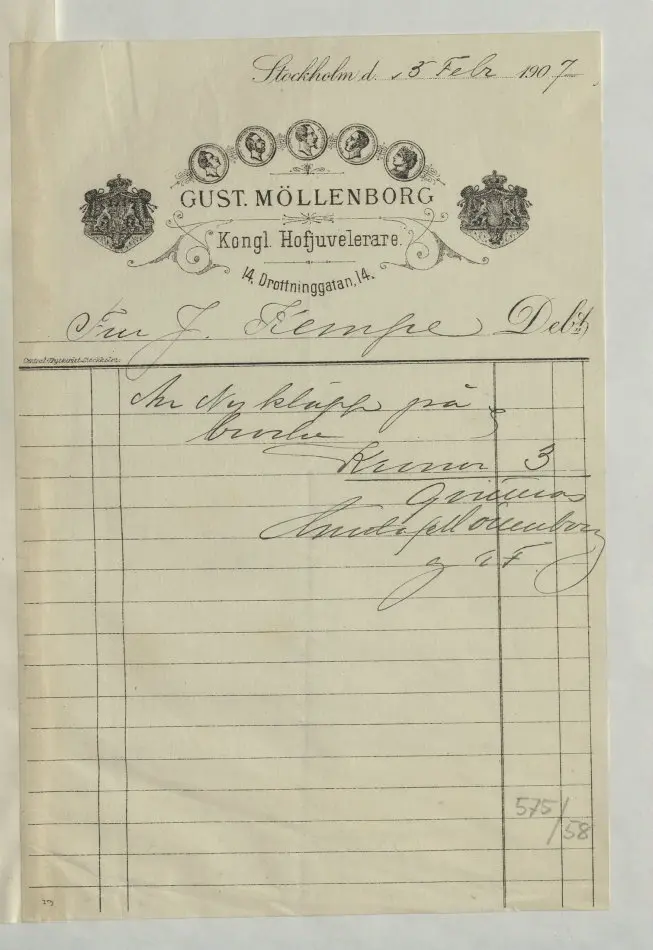 Stockholm d. 5 Febr 1907
GUST. MÖLLENBORG
Kongl. Hofjuvelerare.
14, Drottninggatan, 14.
Fru J. Kempe Debt
Central-Tryckeriet, Stockholm.
An Ny kläpp på
broche
Kronor 3
Qvitteras
Gustaf Möllenborg
g F
575/58